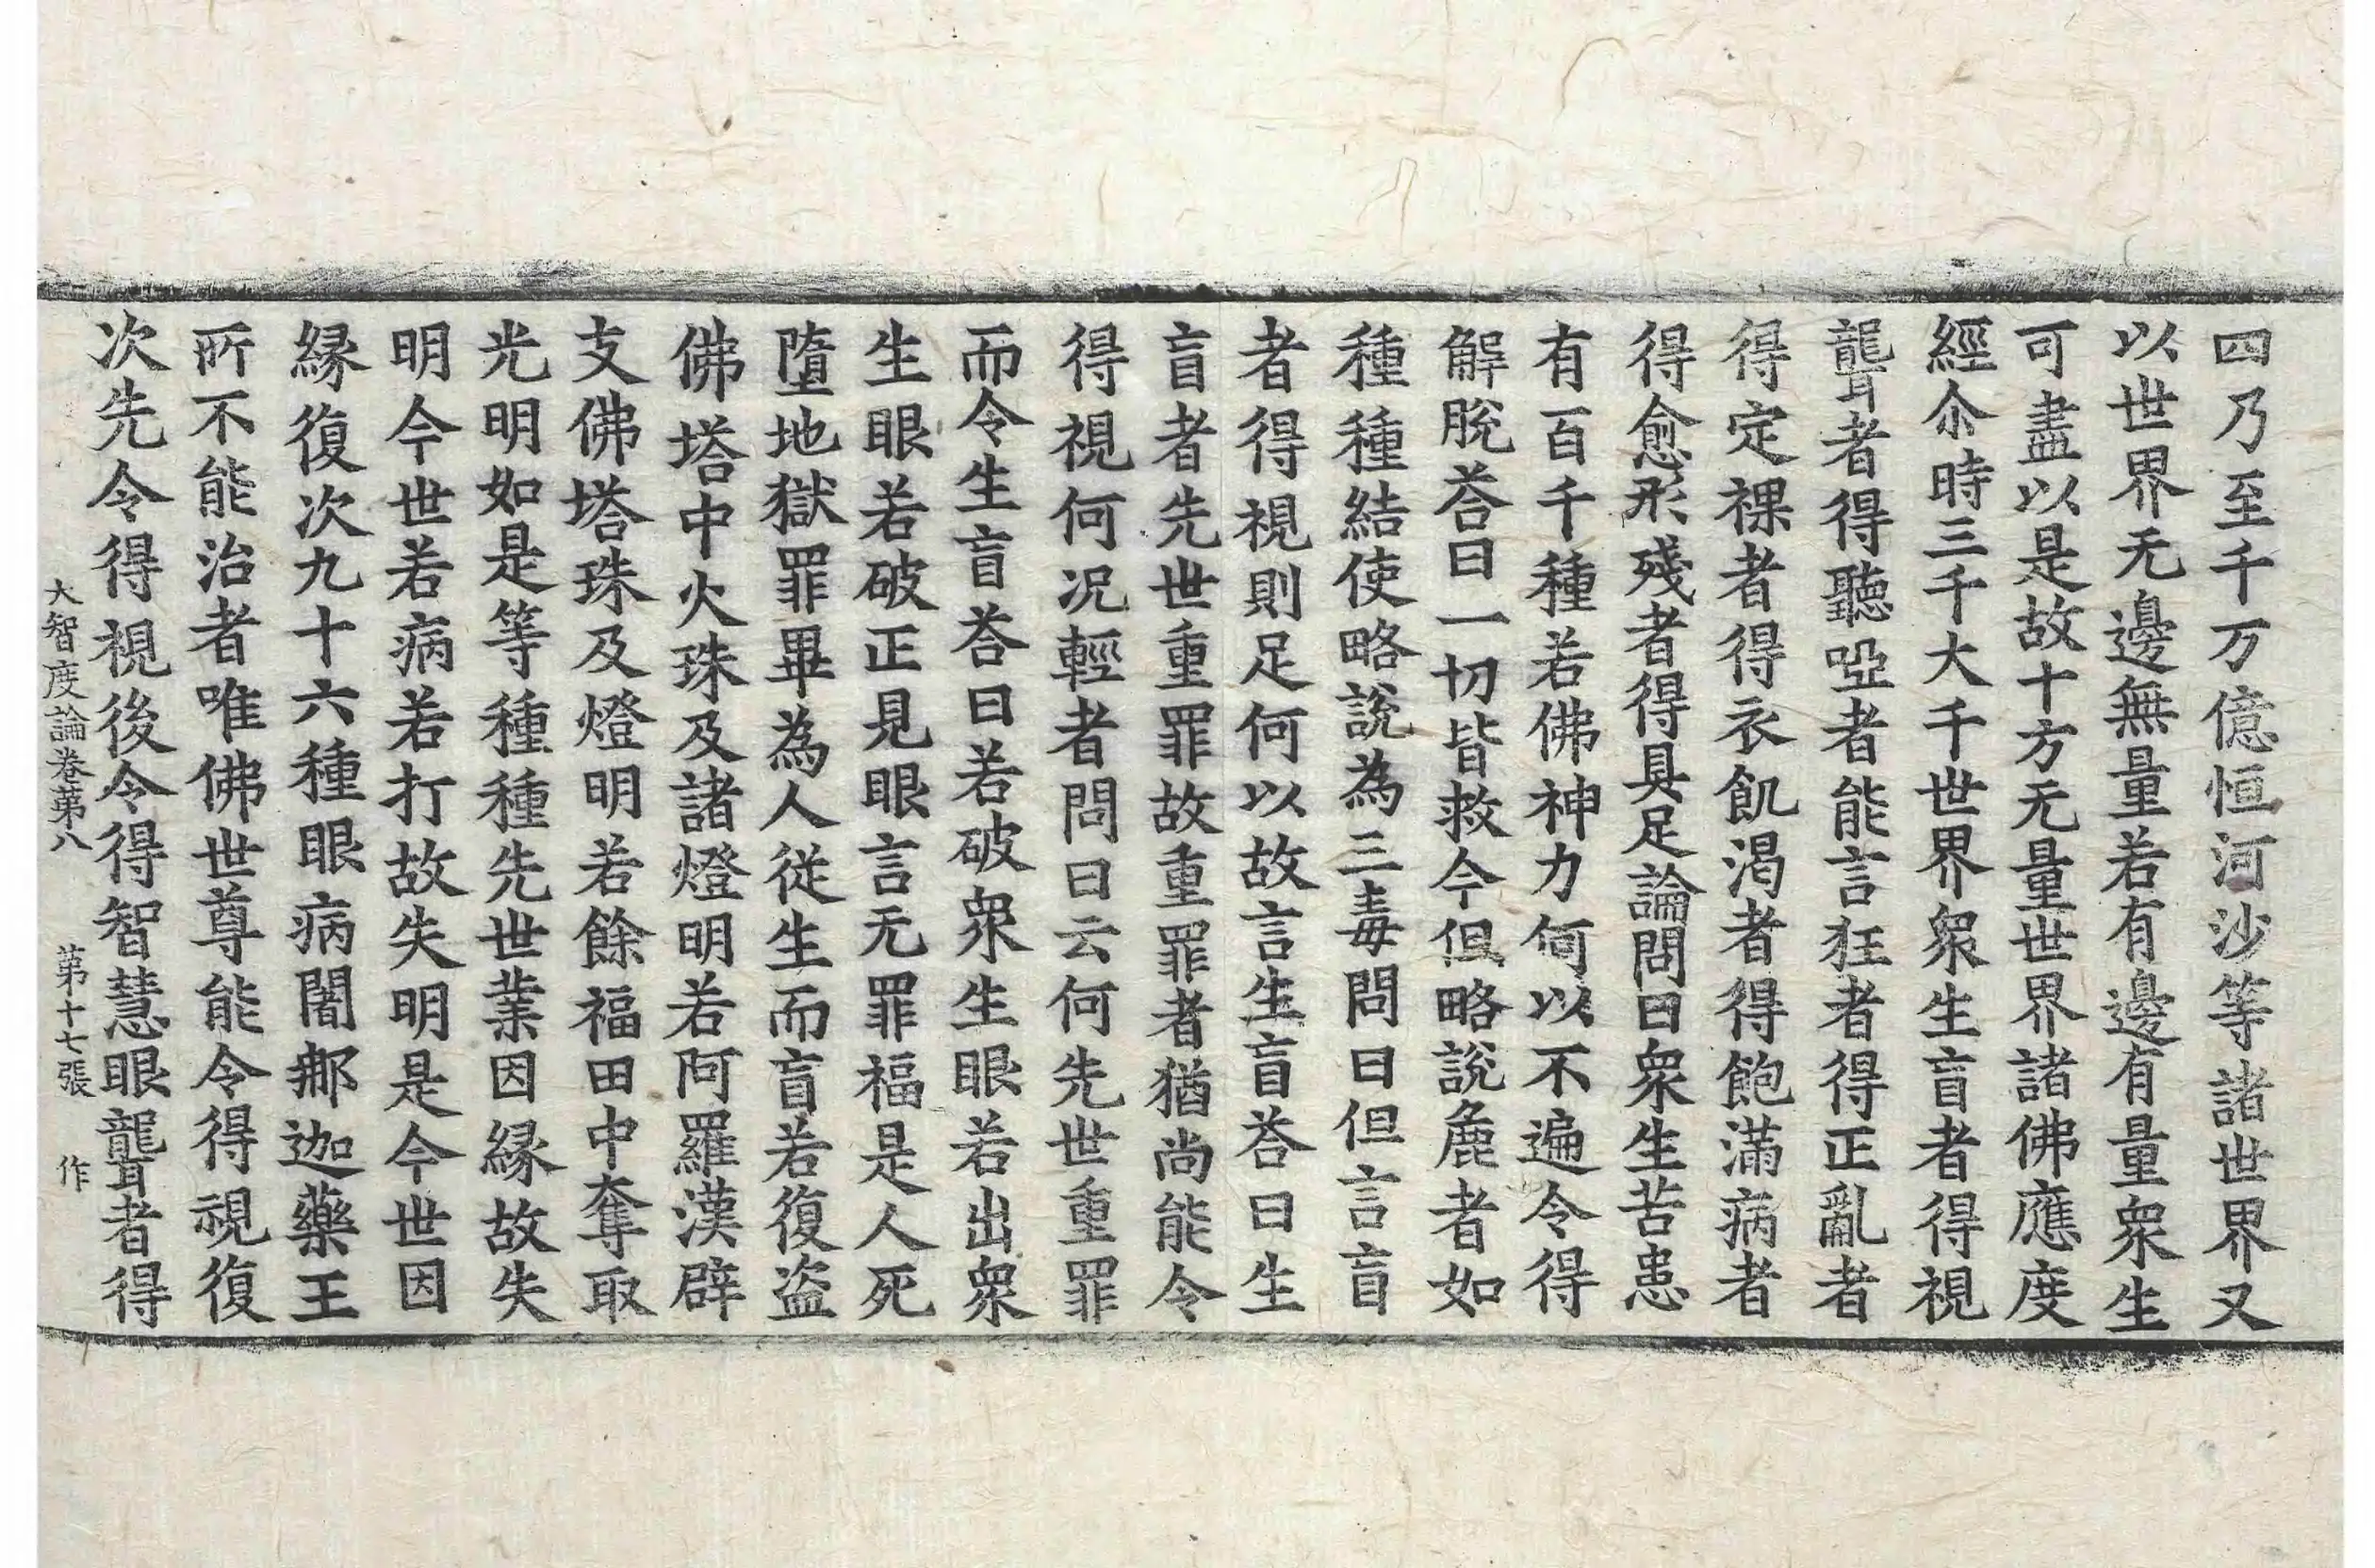 四乃至千万億恒河沙等諸世界又
以世界无邊無量若有邊有量衆生
可盡以是故十方无量世界諸佛應度
經尒時三千大千世界衆生盲者得視
聾者得聽啞者能言狂者得正亂者
得定裸者得衣飢渴者得飽滿病者
得愈形殘者得具足論問曰衆生苦患
有百千種若佛神力何以不遍令得
解脫荅曰一切皆救今但略說麁者如
種種結使略說為三毒問曰但言盲
者得視則足何以故言生盲荅曰生
盲者先世重罪故重罪者猶尚能令
得視何况輕者問曰云何先世重罪
而令生盲荅曰若破衆生眼若出衆
生眼若破正見眼言无罪福是人死
墮地獄罪畢為人從生而盲若復盜
佛塔中火珠及諸燈明若阿羅漢辟
支佛塔珠及燈明若餘福田中奪取
光明如是等種種先世業因緣故失
明今世若病若打故失明是今世因
緣復次九十六種眼病闍那迦藥王
所不能治者唯佛世尊能令得視復
次先令得視後令得智慧眼聾者得
大智度論卷第八 第十七張 作